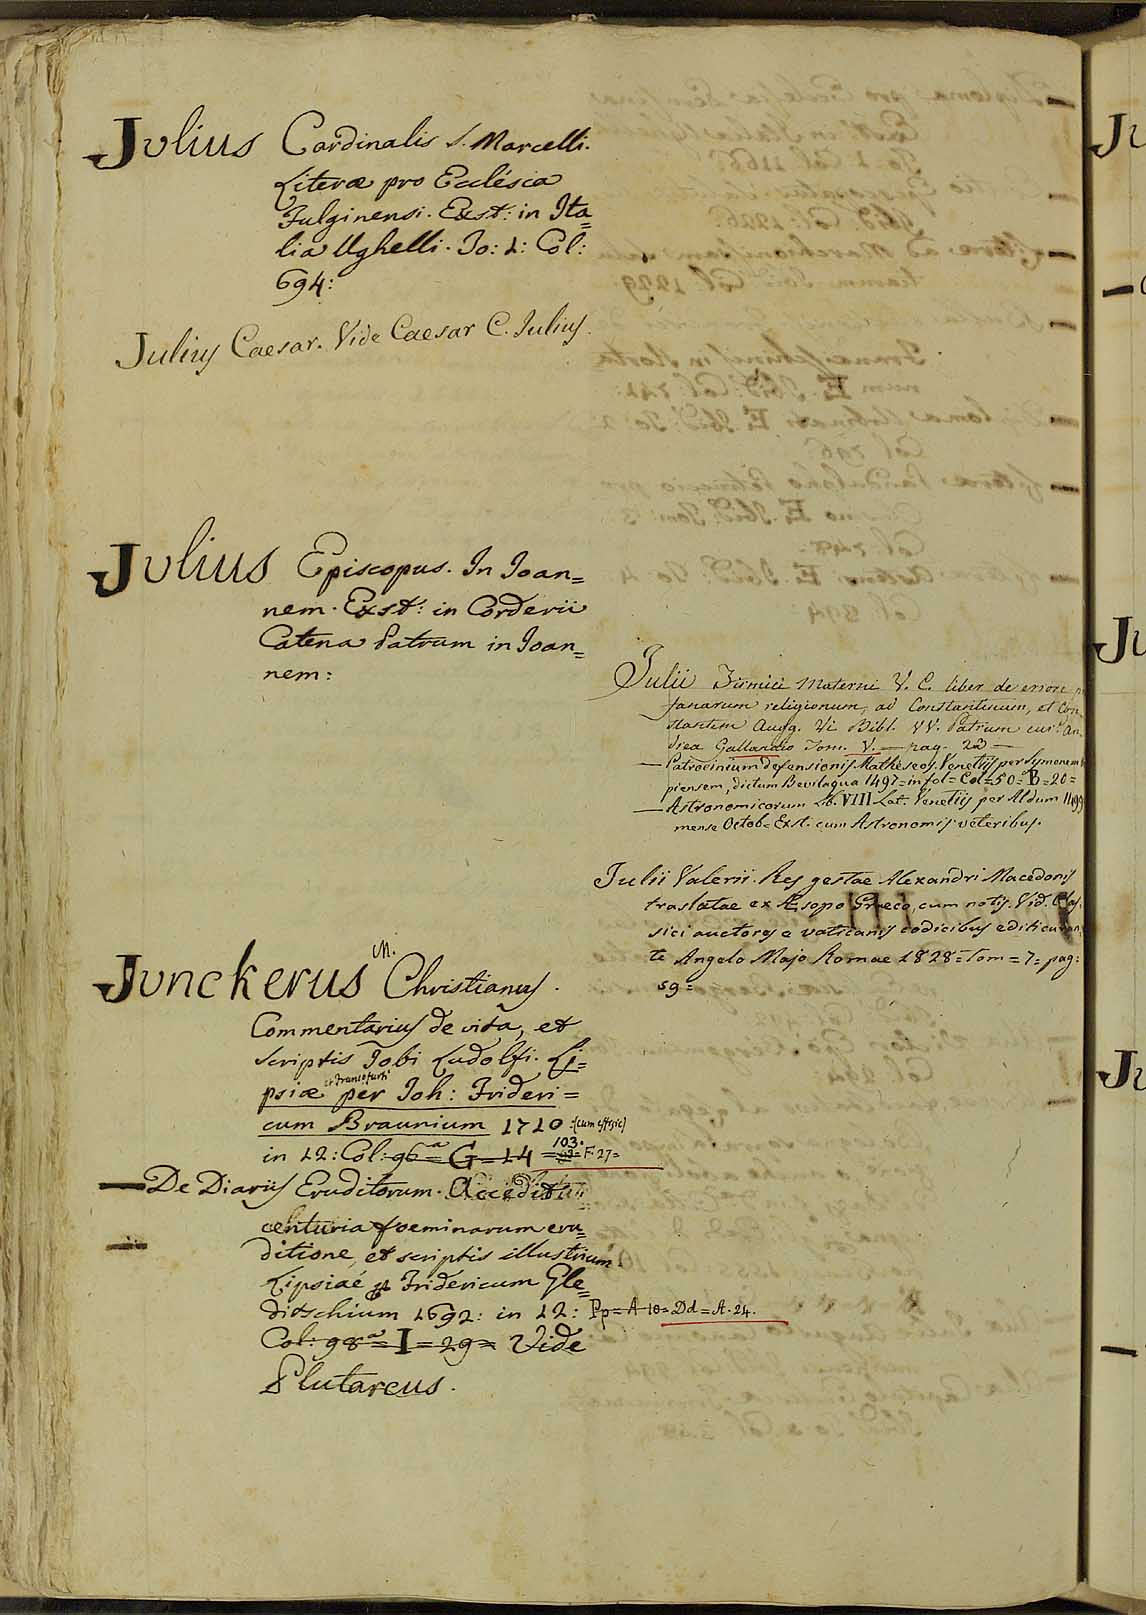 Julius Cardinalis S. Marcelli.
Literæ pro Ecclésia
Fulginensi. Exst: in Ita=
lia Ughelli. To: 1: Col:
694:
Julius Caesar. Vide Caesar C. Julius.
Julius Episcopus. In Joan=
nem. Exst: in Corderii
Catena Patrum in Joan=
nem:
Junckerus M. Christianus.
Commentarius de vita, et
scriptis Jobi Ludolfi. Li=
psiæ et Francofurti per Joh: Frideri=
cum Braunium 1710: (cum effigie)
in 12: Col: 96a = G = 14 = 103. = F. 27=
— De Diariis Eruditorum. Accedit
centuria foeminarum eru=
ditione, et scriptis illustrium
Lipsiaé Fridericum Gle=
ditschium 1692: in 12: Pp = A 10 = Dd = A. 24.
Col: 98a = I = 29 = Vide
Plutarcus.
Julii Firmici Materni V. C. liber de errore
fanarum religionum, ad Constantinum, et Con=
stantem Augg. Bibl. VV. Patrum cur. An=
drea Gallandio Tom. V. — pag. 23 —
— Patrocinium defensionis Matheseos. Venetiis per Symonem
piensem, dictum Bevilaqua 1497 = in fol = Col = 50 = B = 20 =
— Astronomicorum Lib. VIII Lat. Venetiis per Aldum 1499
mense Octob. Exst. cum Astronomis veteribus.
Julii Valerii. Res gestae Alexandri Macedonis
traslatae ex Æsopo Graeco, cum notis. Vid. Clas=
sici auctores e vaticanis codicibus editi curan=
te Angelo Majo Romae 1828 = Tom = 7 = pag:
59 =